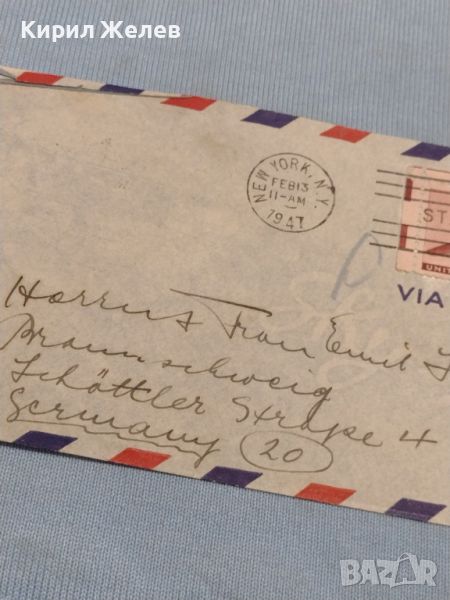 Кирил Желев
NEW YORK, N.Y.
FEB 13
11-AM
1947
ST
UNIT
VIA
Herrn u Frau Emil
Braunschweig
Schöttler Straße 4
Germany (20)
BAZAR